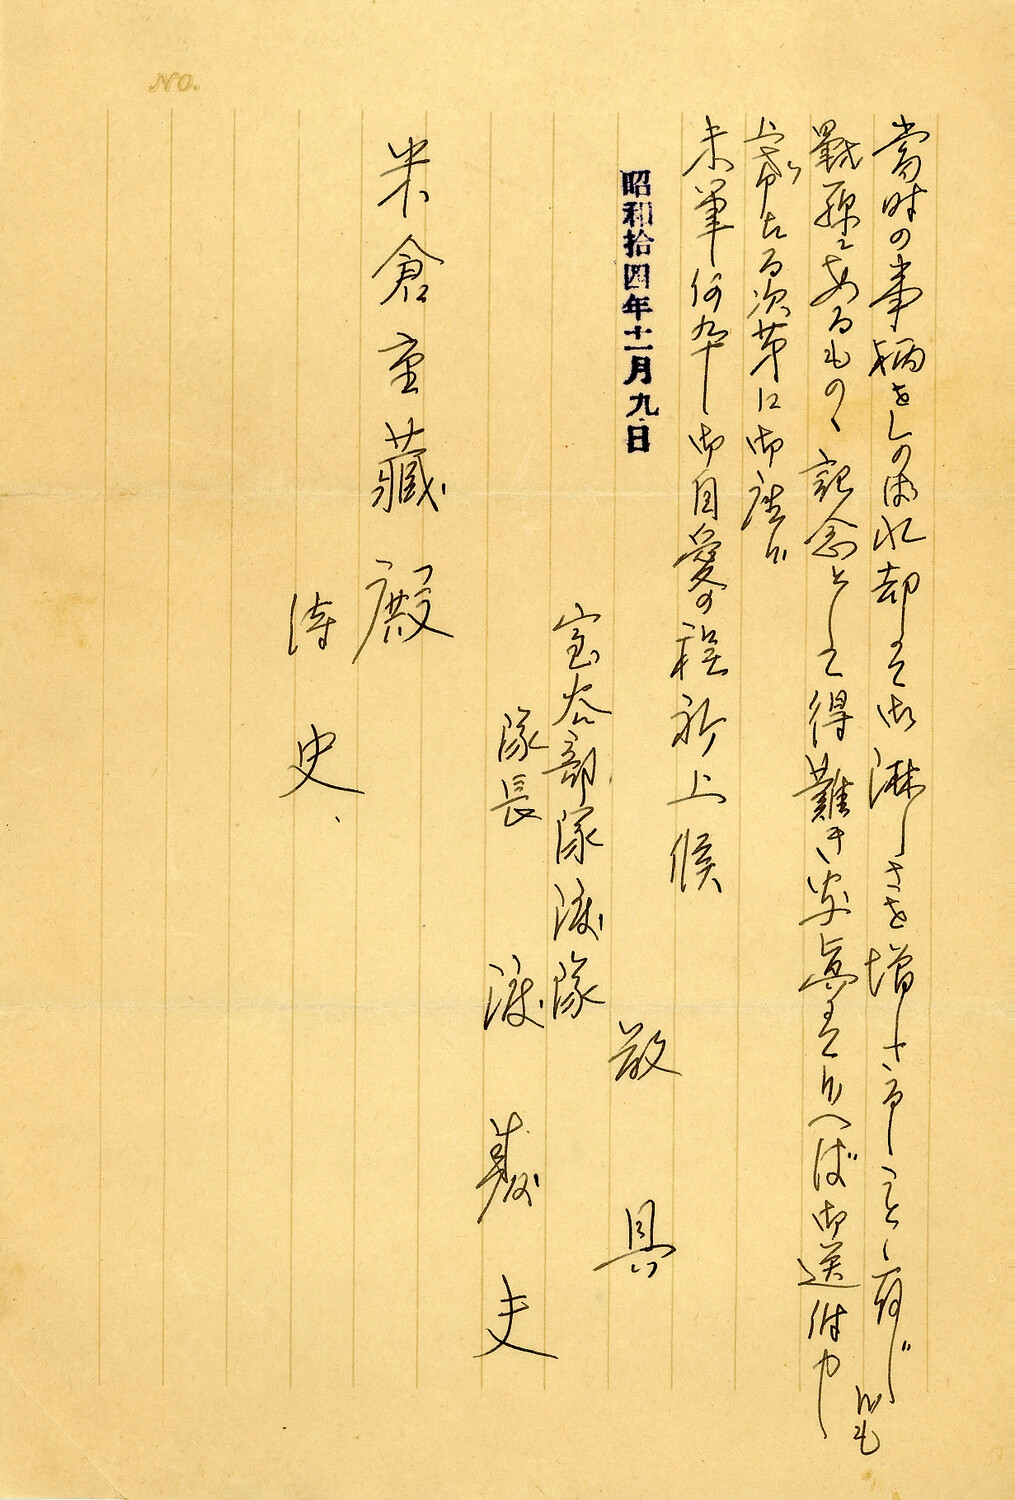 NO.
當時の事柄をしのばれ却って御淋しさを増す可しことゝ存じ候も
戰歿にあるものゝ記念として得難き寫眞に候へば御送付申し
上たる次第に御座候
末筆何卒御自愛の程祈上候
昭和拾四年十一月九日
敬具
部隊渡隊
隊長 渡 義夫
米倉重藏殿
侍史